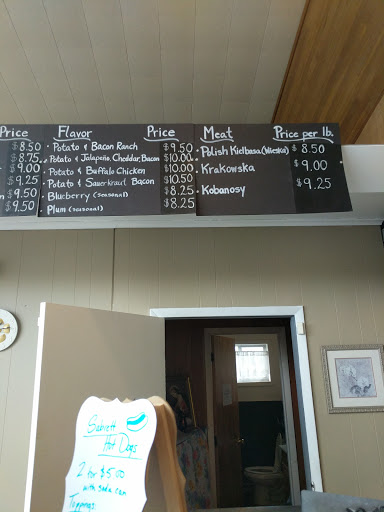 Price
$8.50
$8.75
$9.00
$9.25
$9.50
$9.50
Flavor Price
Potato & Bacon Ranch $9.50
Potato & Jalapeño, Cheddar, Bacon $10.00
Potato & Buffalo Chicken $10.00
Potato & Sauerkraut Bacon $10.50
Blueberry (seasonal) $8.25
Plum (seasonal) $8.25
Meat Price per lb.
Polish Kielbasa (Wiejska) $8.50
Krakowska $9.00
Kobanosy $9.25
Sabrett
Hot Dogs
2 for $5.00
with soda can
Toppings